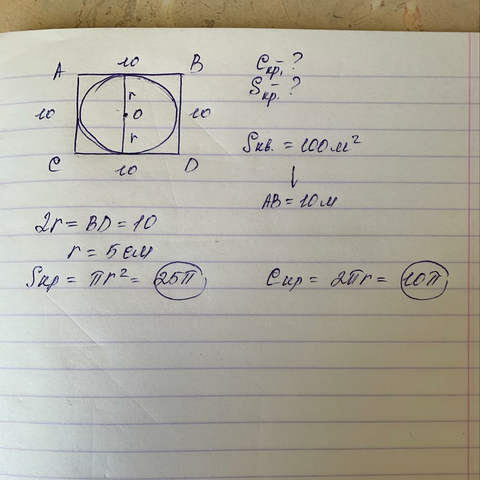 10
A B
r
10 O 10
r
C D
10
Cкр. - ?
Sкр. - ?
Sкв. = 100м²
↓
AB = 10м
2r = BD = 10
r = 5 см
Sкр = πr² = 25π
Cкр = 2πr = 10π